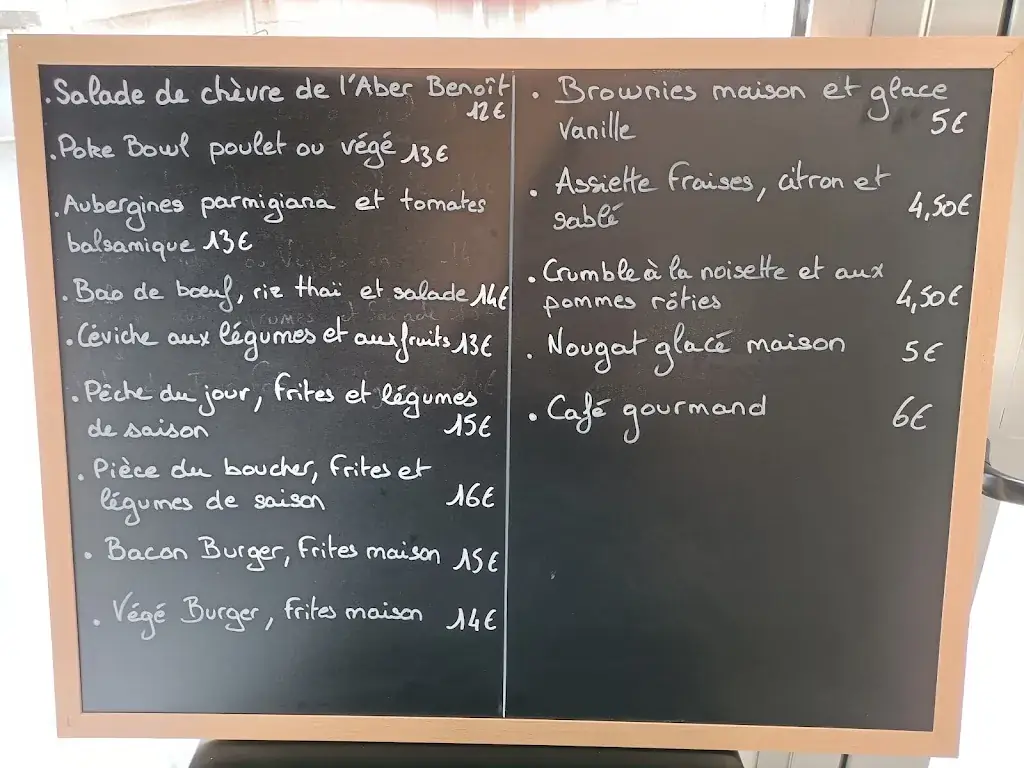 .Salade de chèvre de l'Aber Benoît
12€
.Poke Bowl poulet ou végé 13€
.Aubergines parmigiana et tomates
balsamique 13€
.Bao de bœuf, riz thaï et salade 14€
.Céviche aux légumes et aux fruits 13€
.Pêche du jour, frites et légumes
de saison 15€
.Pièce du boucher, frites et
légumes de saison 16€
.Bacon Burger, frites maison 15€
.Végé Burger, frites maison 14€
.Brownies maison et glace
vanille 5€
.Assiette Fraises, citron et
sablé 4,50€
.Crumble à la noisette et aux
pommes rôties 4,50€
.Nougat glacé maison 5€
.Café gourmand 6€